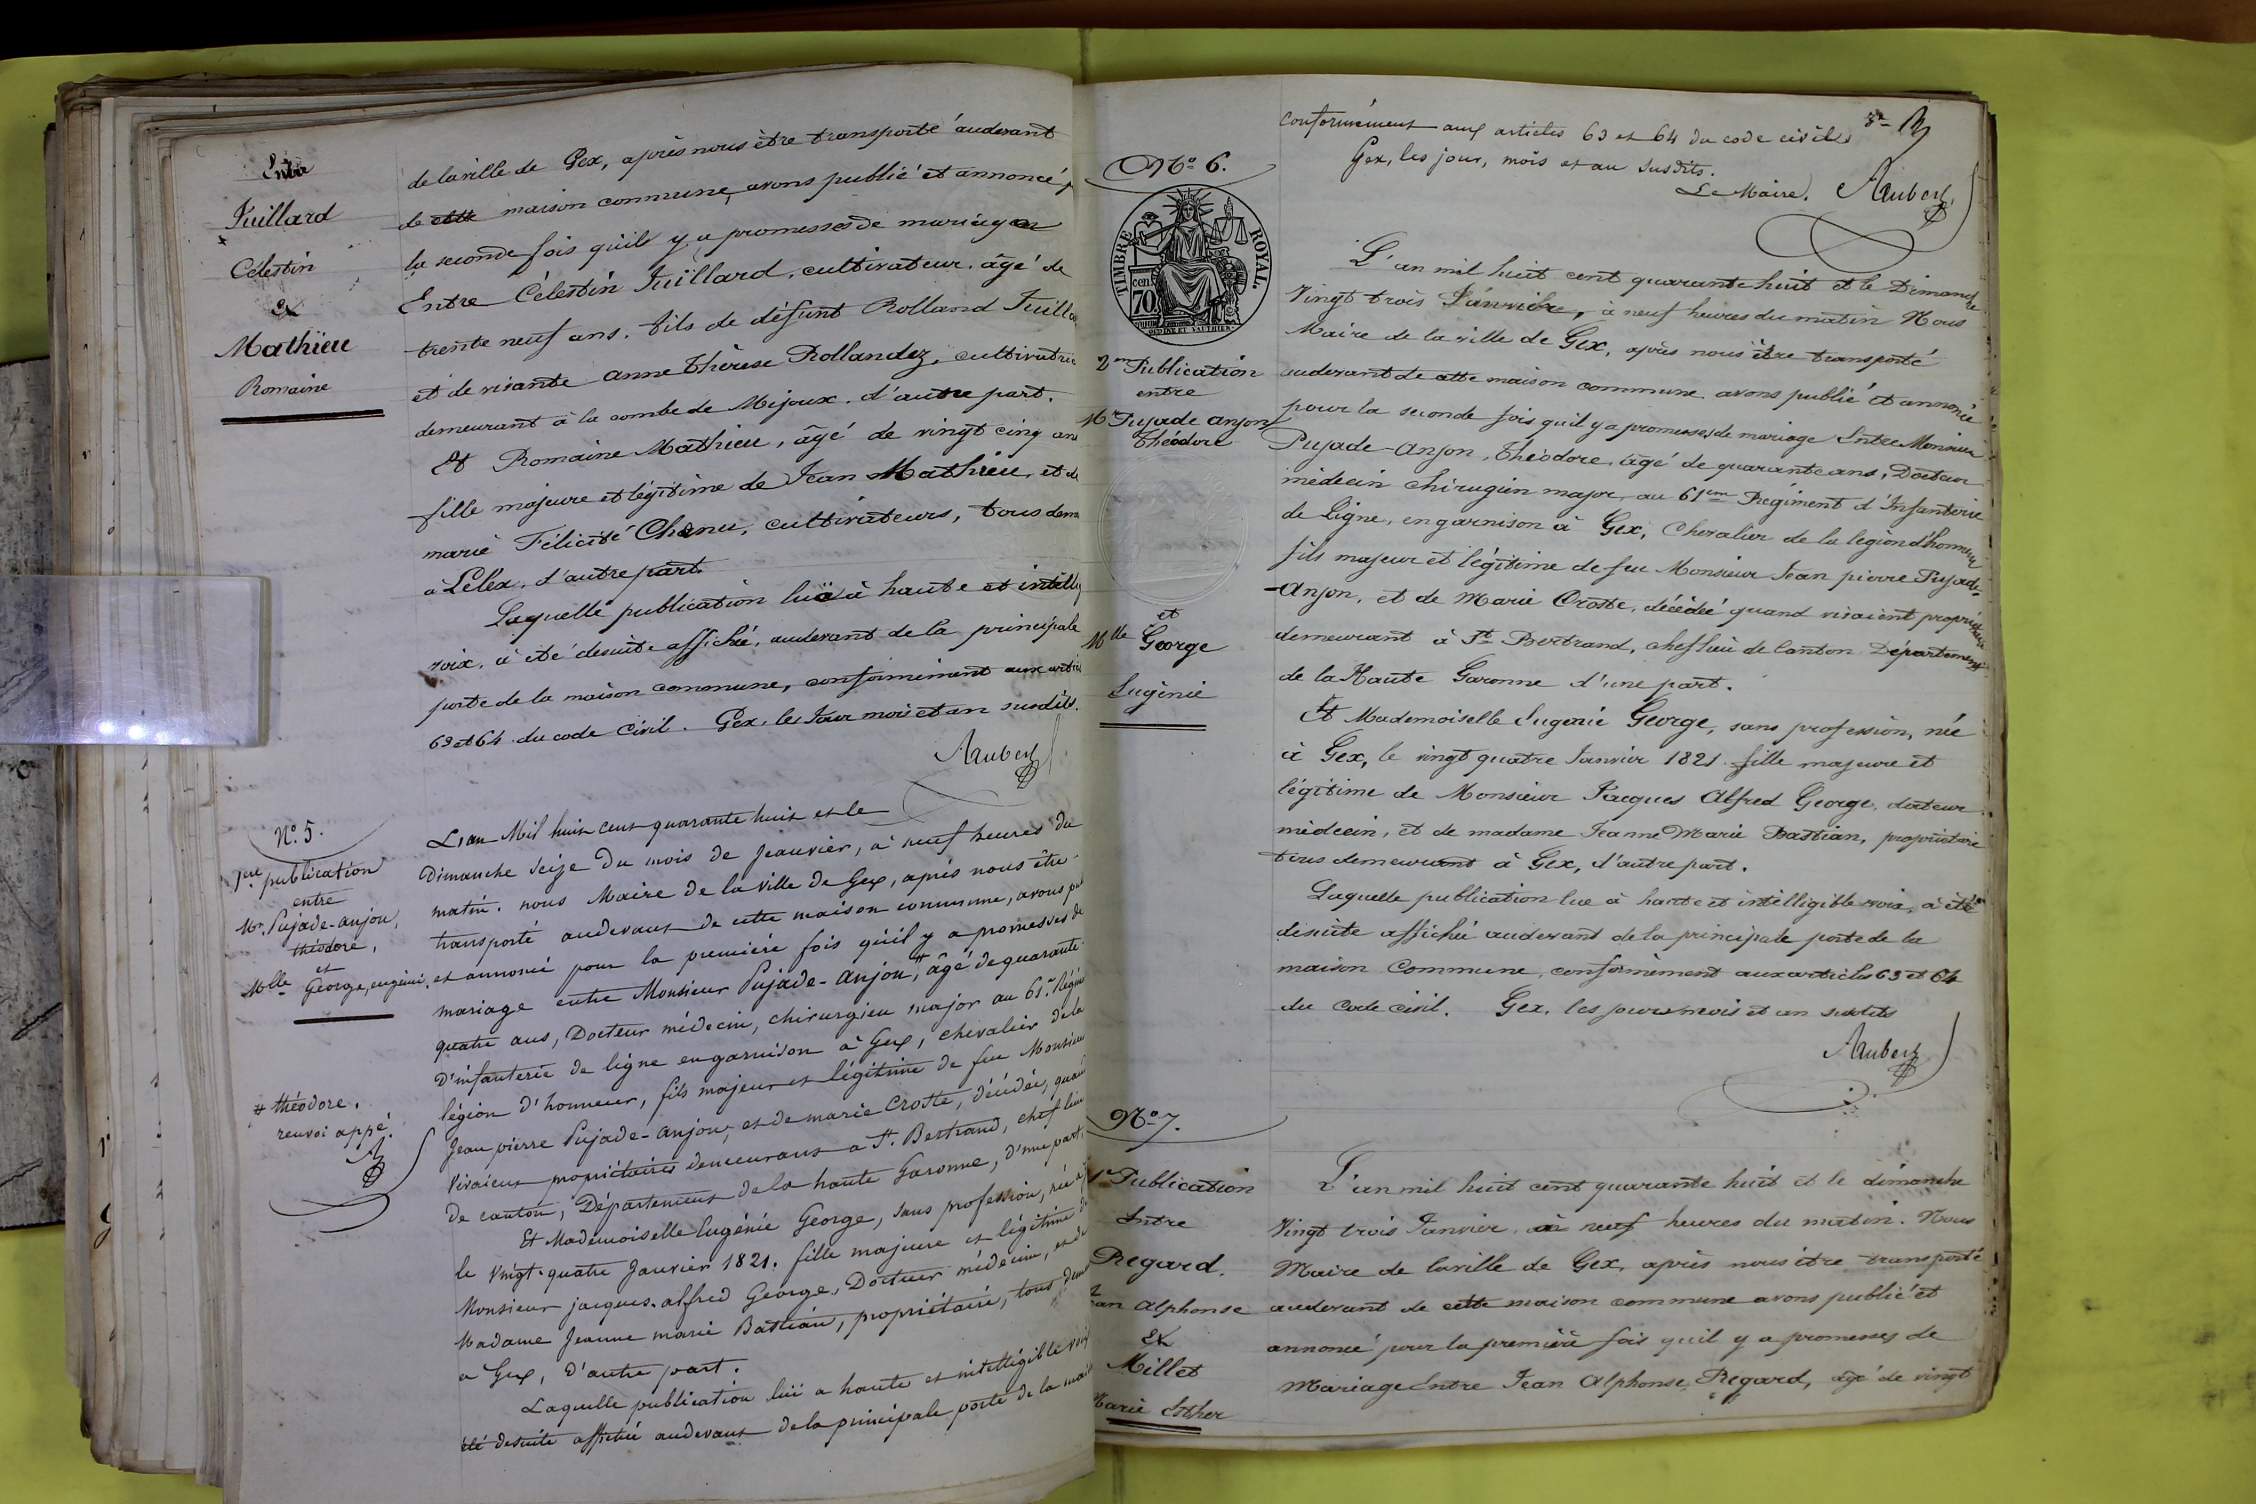 Entre
Juillard
Célestin
et
Mathieu
Romaine
de la ville de Gex, après nous être transporté audevant
de cette maison commune, avons publié et annoncé p
la seconde fois qu'il y a promesses de mariage
Entre Célestin Juillard, cultivateur, âgé de
trente neuf ans, fils de défunt Rolland Juilla
et de vivante anne thérèse Rollandez, cultivatrice
demeurant à la combe de Mijoux, d'autre part.
Et Romaine Mathieu, âgé de vingt cinq ans
fille majeure et légitime de Jean Mathieu, et de
marie Félicité Chanu, cultivateurs, tous dem
à Lelex, d'autre part.
Laquelle publication lue à haute et intellig
voix, à été desuite affiché, audevant de la principale
porte de la maison commune, conformément aux artic
63 et 64 du code civil. Gex, les Jour mois et an susdits.
Aubert
N° 5.
1ere publication
entre
Mr. Pujade-anjou,
théodore,
et
Melle George, eugénie.
# théodore.
renvoi appé.
L'an Mil huit cent quarante huit et le
Dimanche seize du mois de Janvier, à neuf heures du
matin. nous Maire de la ville de Gex, après nous être
transporté audevant de cette maison commune, avons pub
et annoncé pour la première fois qu'il y a promesses de
mariage entre Monsieur Pujade-anjou,# âgé de quarante
quatre ans, Docteur médecin, chirurgien major au 61e Régim
d'infanterie de ligne en garnison à Gex, chevalier de la
légion d'honneur, fils majeur et légitime de feu Monsieur
Jean pierre Pujade-anjou, et de marie Crotte, décédée, quand
vivaient propriétaires demeurans a St. Bertrand, chef lieu
de canton, Département de la haute Garonne, d'une part,
Et Mademoiselle Eugénie George, sans profession, née à
le vingt-quatre Janvier 1821. fille majeure et légitime de
Monsieur jacques-alfred George, Docteur médecin, et de
Madame Jeanne marie Bastian, propriétaire, tous dem
à Gex, d'autre part.
Laquelle publication luë a haute et intelligible voix
été desuite affichée audevant de la principale porte de la mais
conformément aux articles 63 et 64 du code civil.
Gex, les jour, mois et an susdits.
Le Maire. Aubert
N° 6.
TIMBRE ROYAL.
70 cen
2me Publication
entre
Mr Pujade anjon
théodore
et
Mlle George
Eugènie
L'an mil huit cent quarante huit et le Dimanche
Vingt trois Janvier, à neuf heures du matin Nous
Maire de la ville de Gex, après nous être transporté
audevant de cette maison commune avons publié et annoncé
pour la seconde fois qu'il y a promesses de mariage Entre Monsieur
Pujade-anjon, théodore, âgé de quarante ans, Docteur
médecin chirugien major, au 61em Régiment d'Infanterie
de Ligne, en garnison à Gex, Chevalier de la légion d'honneur
fils majeur et légitime de feu Monsieur Jean pierre Pujade-
-anjon, et de Marie Crotte, décédée quand vivaient propriétaire
demeurant à St Bertrand, chef lieu de Canton Département
de la Haute Garonne d'une part.
Et Mademoiselle Eugénie George, sans profession, née
à Gex, le vingt quatre Janvier 1821 fille majeure et
légitime de Monsieur Jacques Alfred George, docteur
médecin, et de madame Jeanne Marie Bastian, propriétaire
tous demeurant à Gex, d'autre part.
Laquelle publication lue à haute et intelligible voix, à été
desuite affiché audevant de la principale porte de la
maison Commune, conformément aux articles 63 et 64
du Code civil. Gex, les jour mois et an susdits
Aubert
N° 7.
1e Publication
Entre
Regard,
Jean Alphonse
et
Millet
Marie Esther
L'an mil huit cent quarante huit et le dimanche
Vingt trois Janvier, à neuf heures du matin. Nous
Maire de la ville de Gex, après nous être transporté
audevant de cette maison commune avons publié et
annoncé pour la première fois qu'il y a promesses de
Mariage Entre Jean Alphonse Regard, âgé de vingt